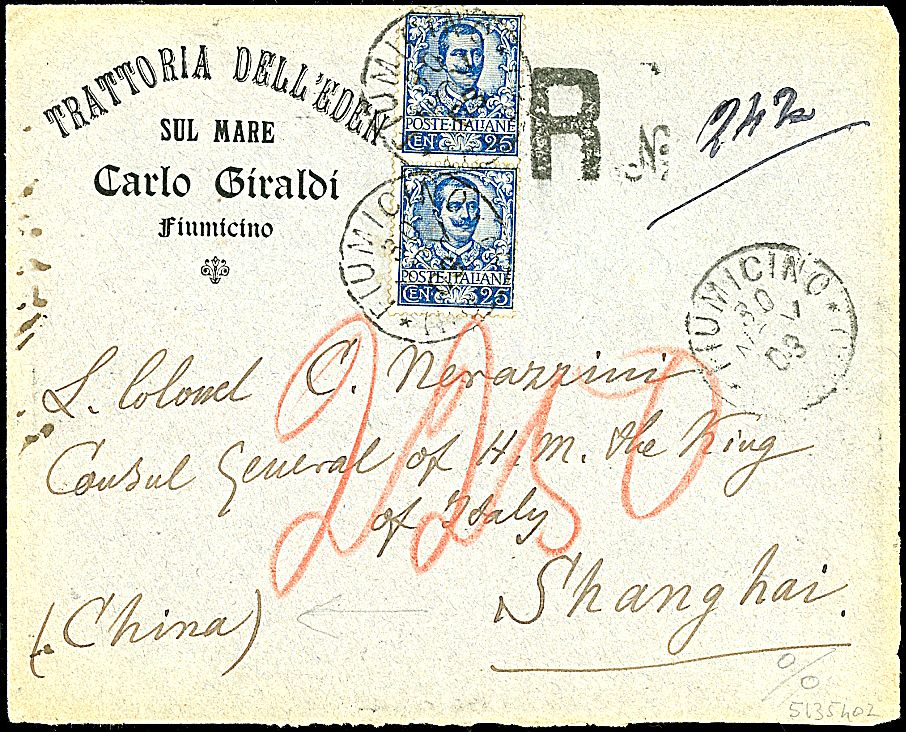 TRATTORIA DELL'EDEN
SUL MARE
Carlo Giraldi
Fiumicino
POSTE ITALIANE
CEN 25
POSTE ITALIANE
CEN 25
FIUMICINO
R
No
242
FIUMICINO
FIUMICINO
30
03
L. Colonel C. Nerazzini
Consul General of H. M. the King
of Italy
Shanghai.
(China)
%
5135402